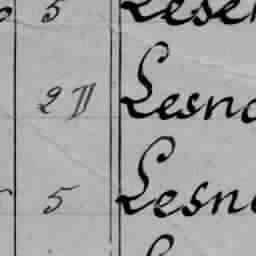 5 Lese
2 II Lesn
5 Lesn